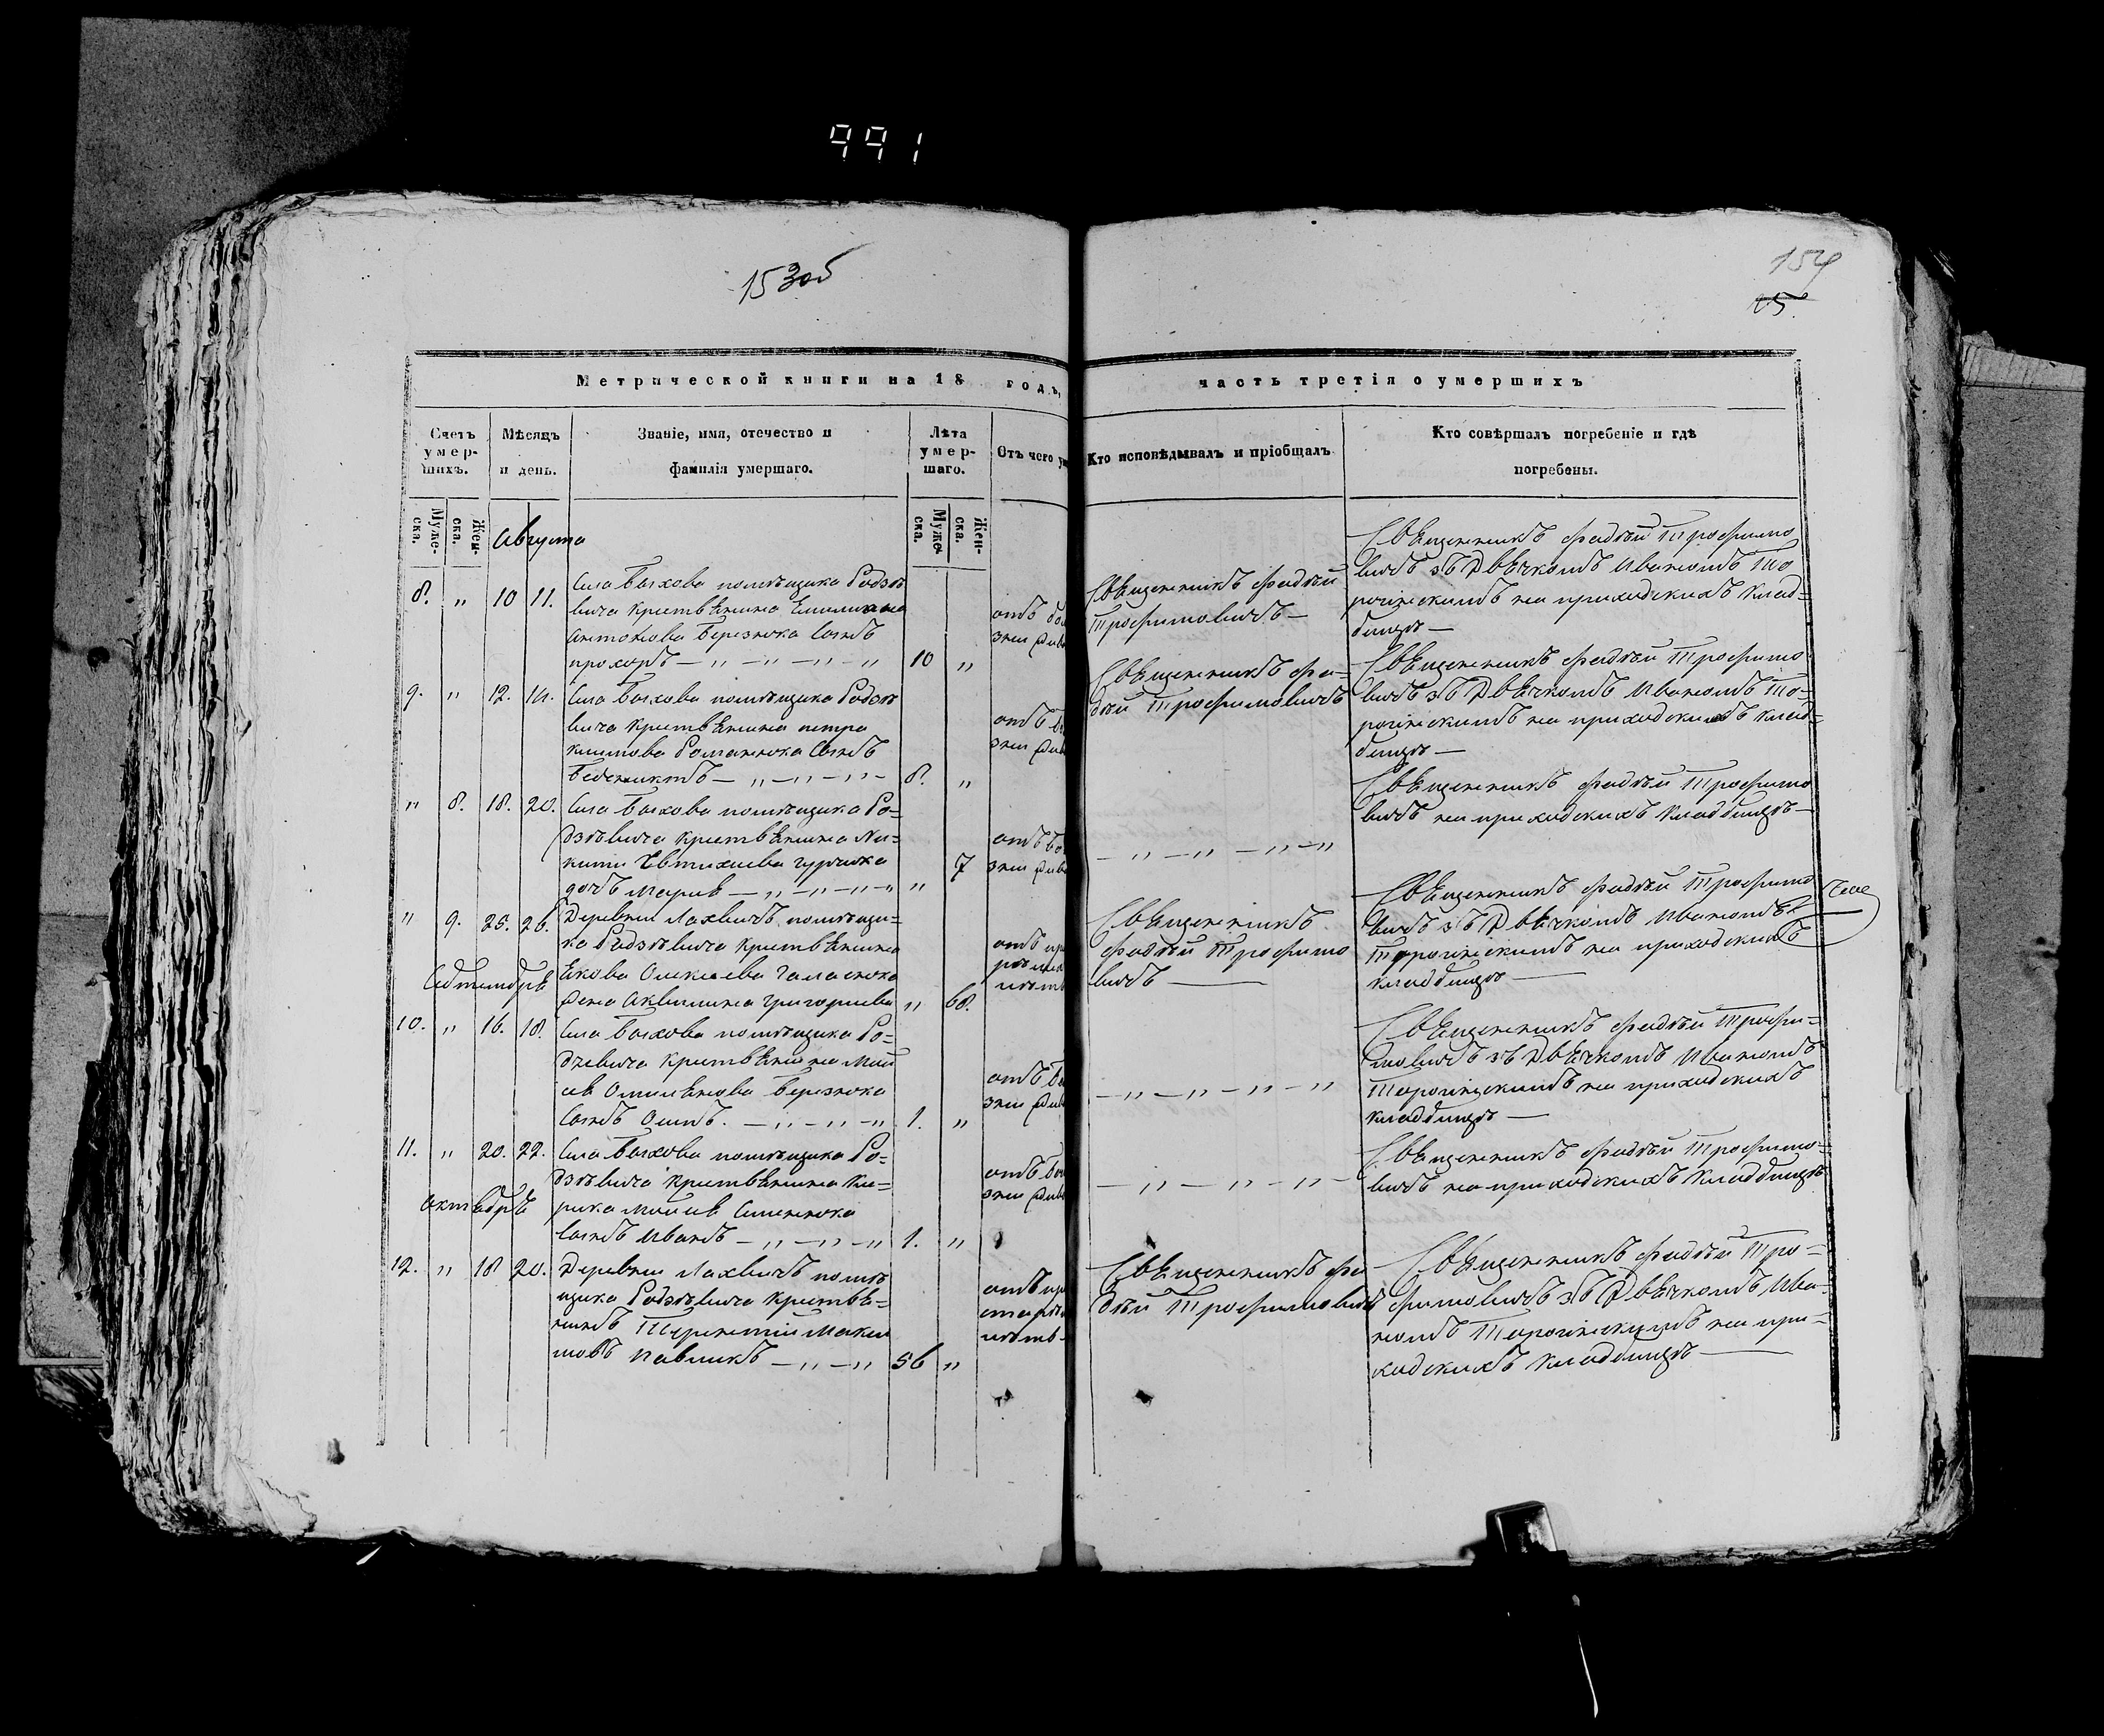 991
153об
154
Метрической книги на 18 годъ,
часть третія о умершихъ
Счетъ умер-шихъ.
Мѣсяцъ и день.
Званіе, имя, отечество и
фамилія умершаго.
Лѣта умер-шаго.
Отъ чего
Кто исповѣдывалъ и пріобщалъ
Кто совѣршалъ погребеніе и гдѣ
погребены.
Муже-ска.
Жен-ска.
Муже-ска.
Жен-ска.
Августа
8. " 10 11.
Села Быхова помѣщика Родзѣ
вича крестьянина Емилиана
Антонова Березнюка сынъ
прохоръ — " — " — " — " 10 "
Священникъ Фадѣй
Трофимовичъ —
Священникъ Фадѣй Трофимо
вичъ зъ Дьячкомъ Иваномъ То
рочинскимъ на приходскихъ клад=
бищѣ —
9. " 12. 14.
Села Быхова помѣщика Родзѣ
вича крестьянина петра
климова Романюка Сынъ
Бедениктъ — " — " — " — 8. "
Священникъ Фа-
дѣй Трофимовичъ
Священникъ Фадѣй Трофимо
вичъ зъ Дьячкомъ Иваномъ То-
рочинскимъ на приходскихъ клад=
бищѣ —
" 8. 18. 20.
Села Быхова помѣщика Ро=
дзѣвича крестьянина Ни-
киты Евтихиева
дочь Мария — " — " — " — " " 7
— " — " — " — "
Священникъ Фадѣй Трофимо
вичъ на приходскихъ кладбищѣ —
" 9. 25. 26.
Деревни Лахвичъ помѣщи=
ка Родзѣвича крестьянина
Якова Олексиева Галасюка
жена Аквилина Григориева " 68.
Священникъ
Фадѣй Трофимо
вичъ —
Священникъ Фадѣй Трофимо
вичъ зъ Дьячкомъ Иваномъ
Торочинскимъ на приходскихъ
кладбищѣ —
Септембрѣ
10. " 16. 18.
Села Быхова помѣщика Ро=
дзевича крестьянина Мои
сѣя Омилянова Березнюка
Сынъ — " — " — " 1. "
— " — " — " — "
Священникъ Фадѣй Трофи=
мовичъ зъ Дьячкомъ Иваномъ
Торочинскимъ на приходскихъ
кладбищѣ —
11. " 20. 22.
Села Быхова помѣщика Ро=
дзѣвича крестьянина Ки=
рика Моисея Семенюка
Сынъ Иванъ — " — " — " 1. "
— " — " — " —
Священникъ Фадѣй Трофимо=
вичъ на приходскихъ кладбищѣ
октябрѣ
12. " 18 20.
Деревни Лахвичъ помѣ
щика Родзѣвича крестья=
нинъ Терентий Макси
мовъ Павликъ — " — " 56 "
Священникъ Фа
дѣй Трофимовичъ
Священникъ Фадѣй Тро=
фимовичъ зъ Дьячкомъ Ива=
номъ Торочинскимъ на при=
ходскихъ кладбищѣ —